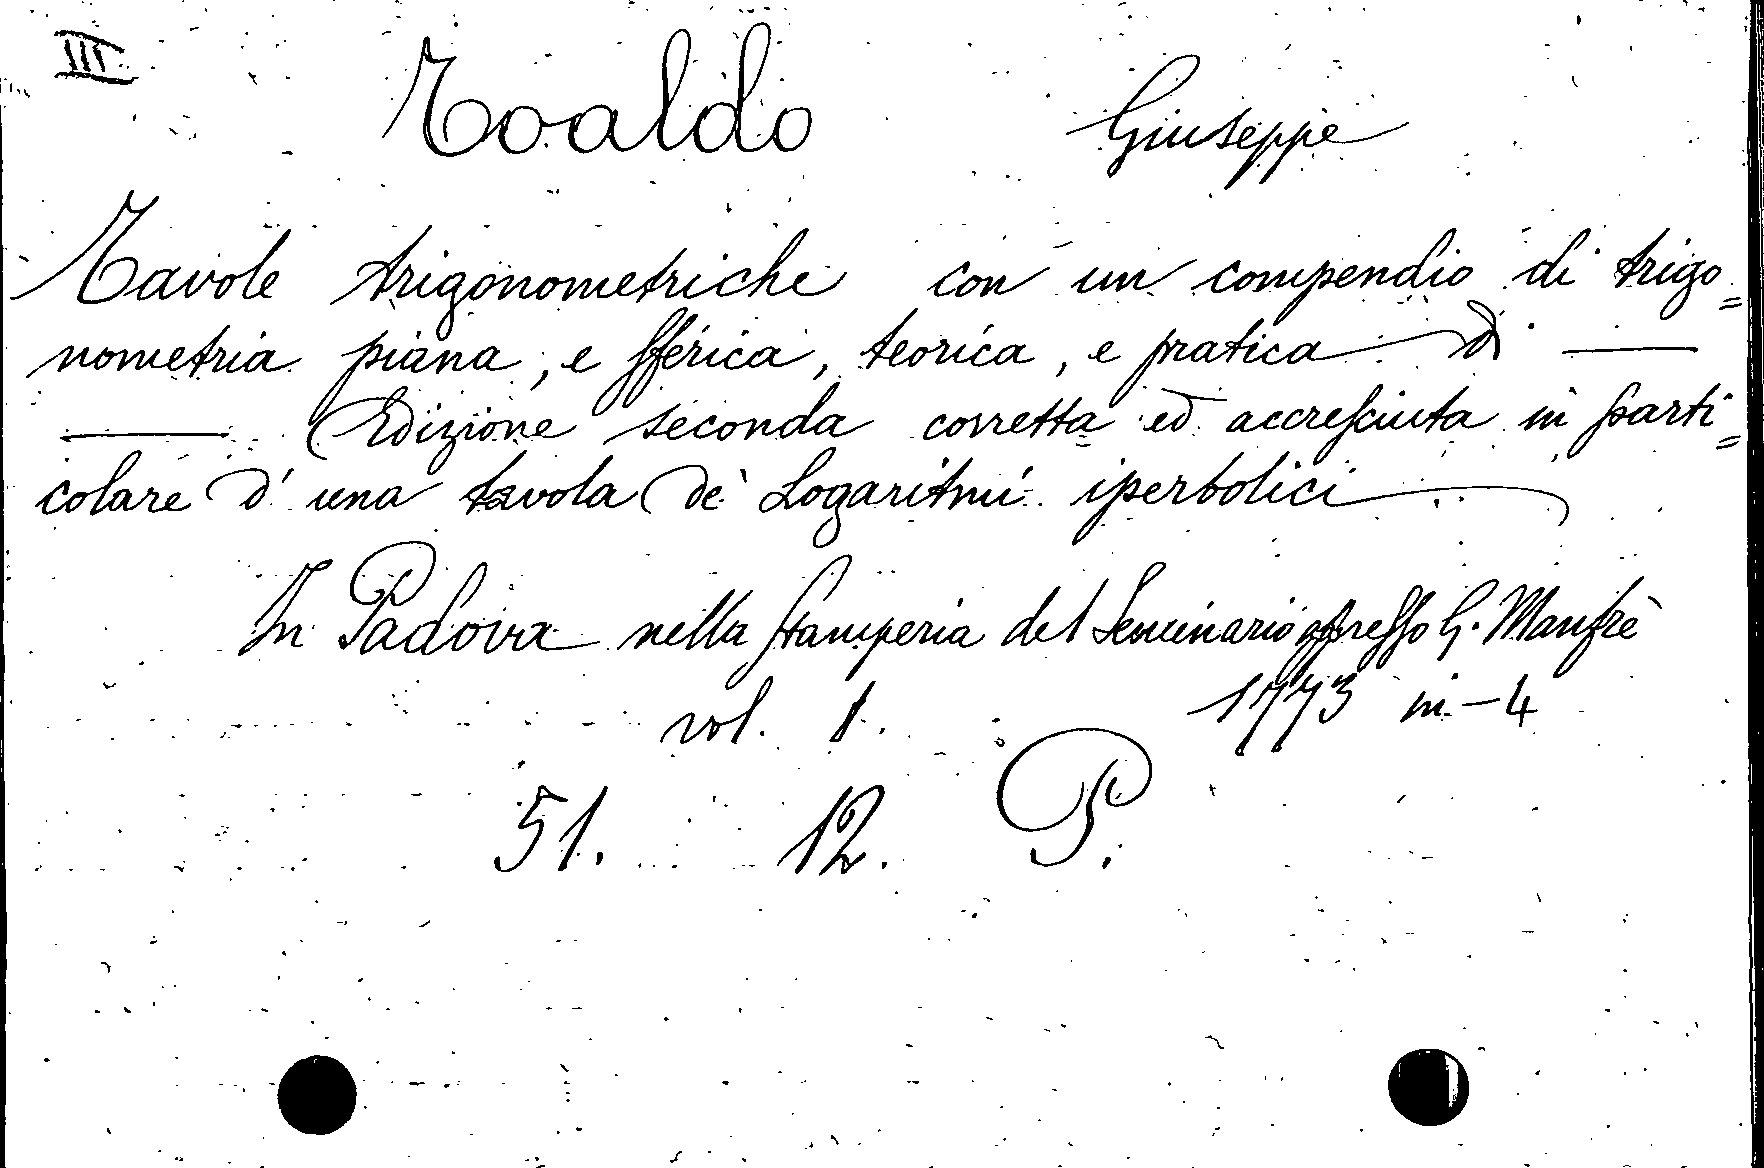 III
Toaldo Giuseppe
Tavole trigonometriche con un compendio di trigo=
nometria piana, e sferica, teorica, e pratica di ——
—— Edizione seconda corretta ed accresciuta in parti=
colare d' una tavola de' Logaritmi iperbolici
In Padova nella Stamperia del Seminario appresso G. Manfrè
vol. 1. 1773 in-4
51. 12. P.